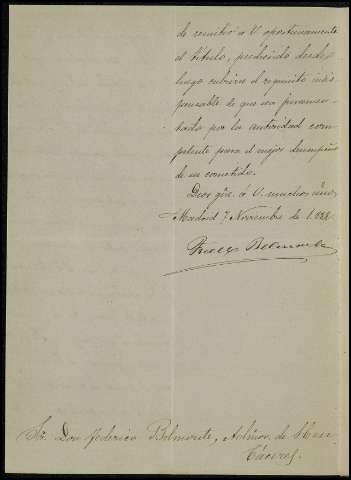 de remitir á V oportunamente
el título, pudiendo desde
luego cubrirse el requisito indis-
pensable de que sea juramen-
tado por la autoridad com-
petente para el mejor desempeño
de su cometido.
Dios gde. á V. muchos años
Madrid 7 Noviembre de 1.888
Belmonte
Sr. Don Federico Belmonte, Admor. de
Cáceres.